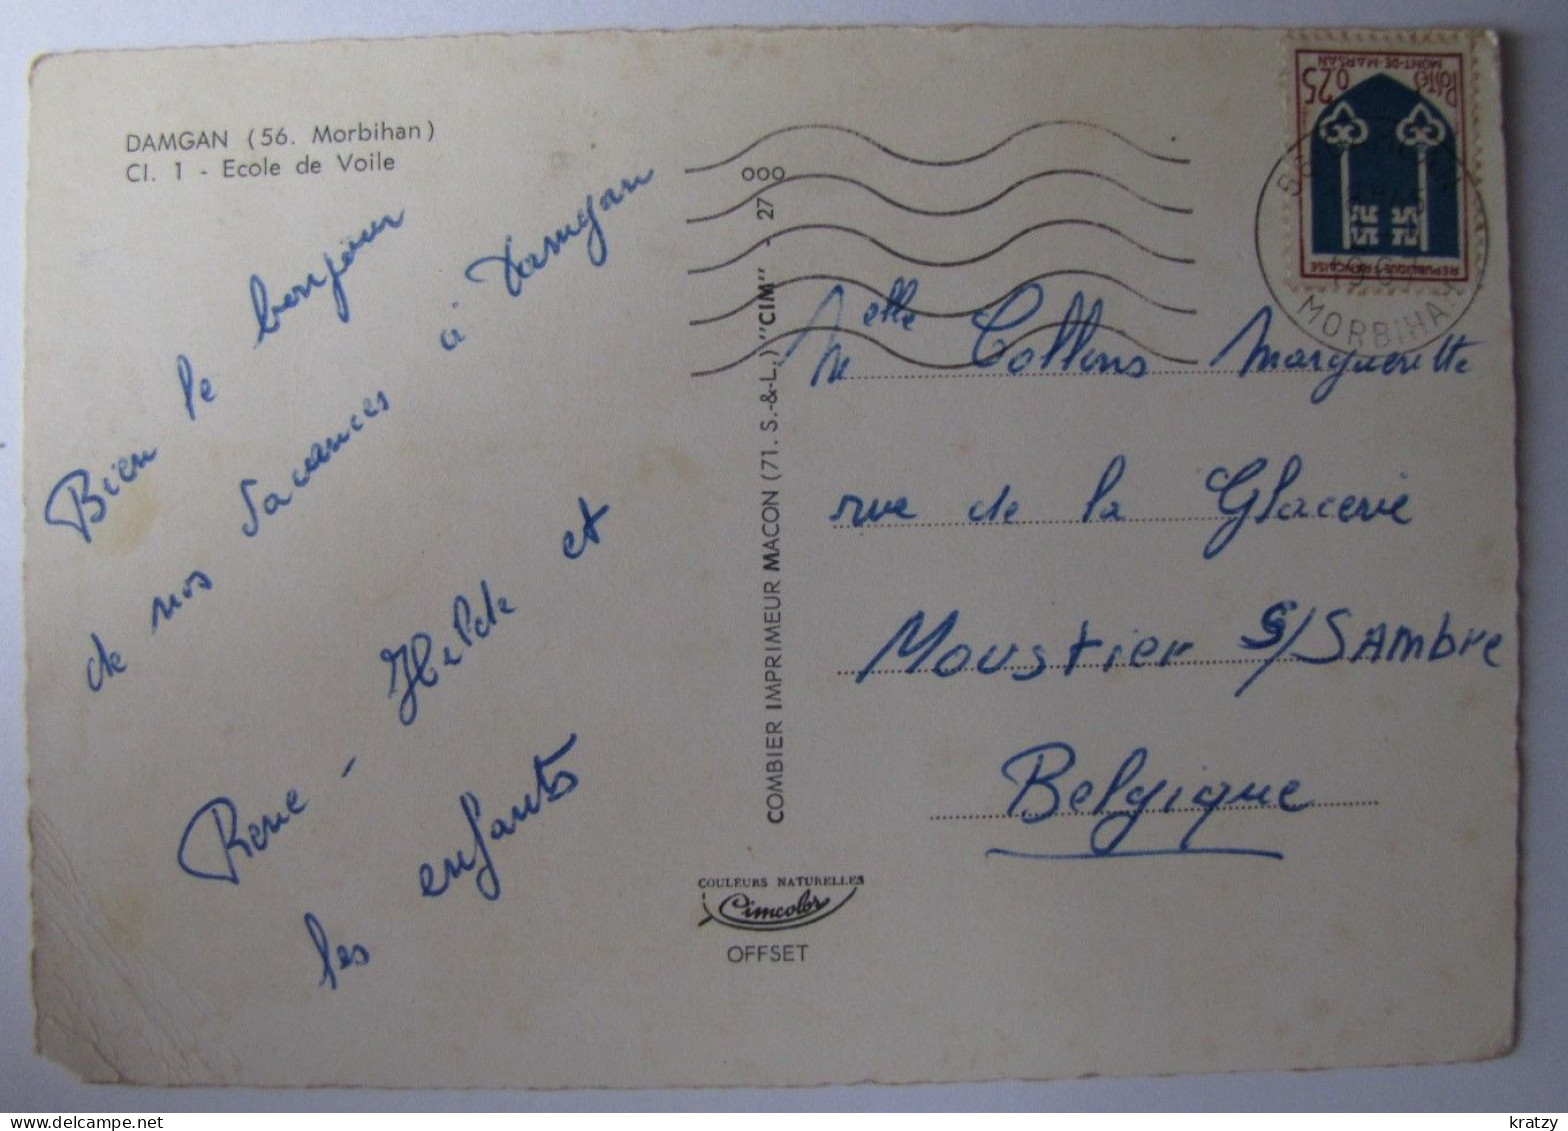 DAMGAN (56. Morbihan)
Cl. 1 - Ecole de Voile
Bien le bonjour
de nos vacances à Damgan
René - Hilde et
les enfants
COMBIER IMPRIMEUR MACON (71. S.-&-L.) "CIM" - 27 000
COULEURS NATURELLES
Cimcolor
OFFSET
0,25
MONT-DE-MARSAN
REPUBLIQUE FRANÇAISE
MORBIHAN
Melle Collins Marguerite
rue de la Glacerie
Moustier S/SAmbre
Belgique
kratzy